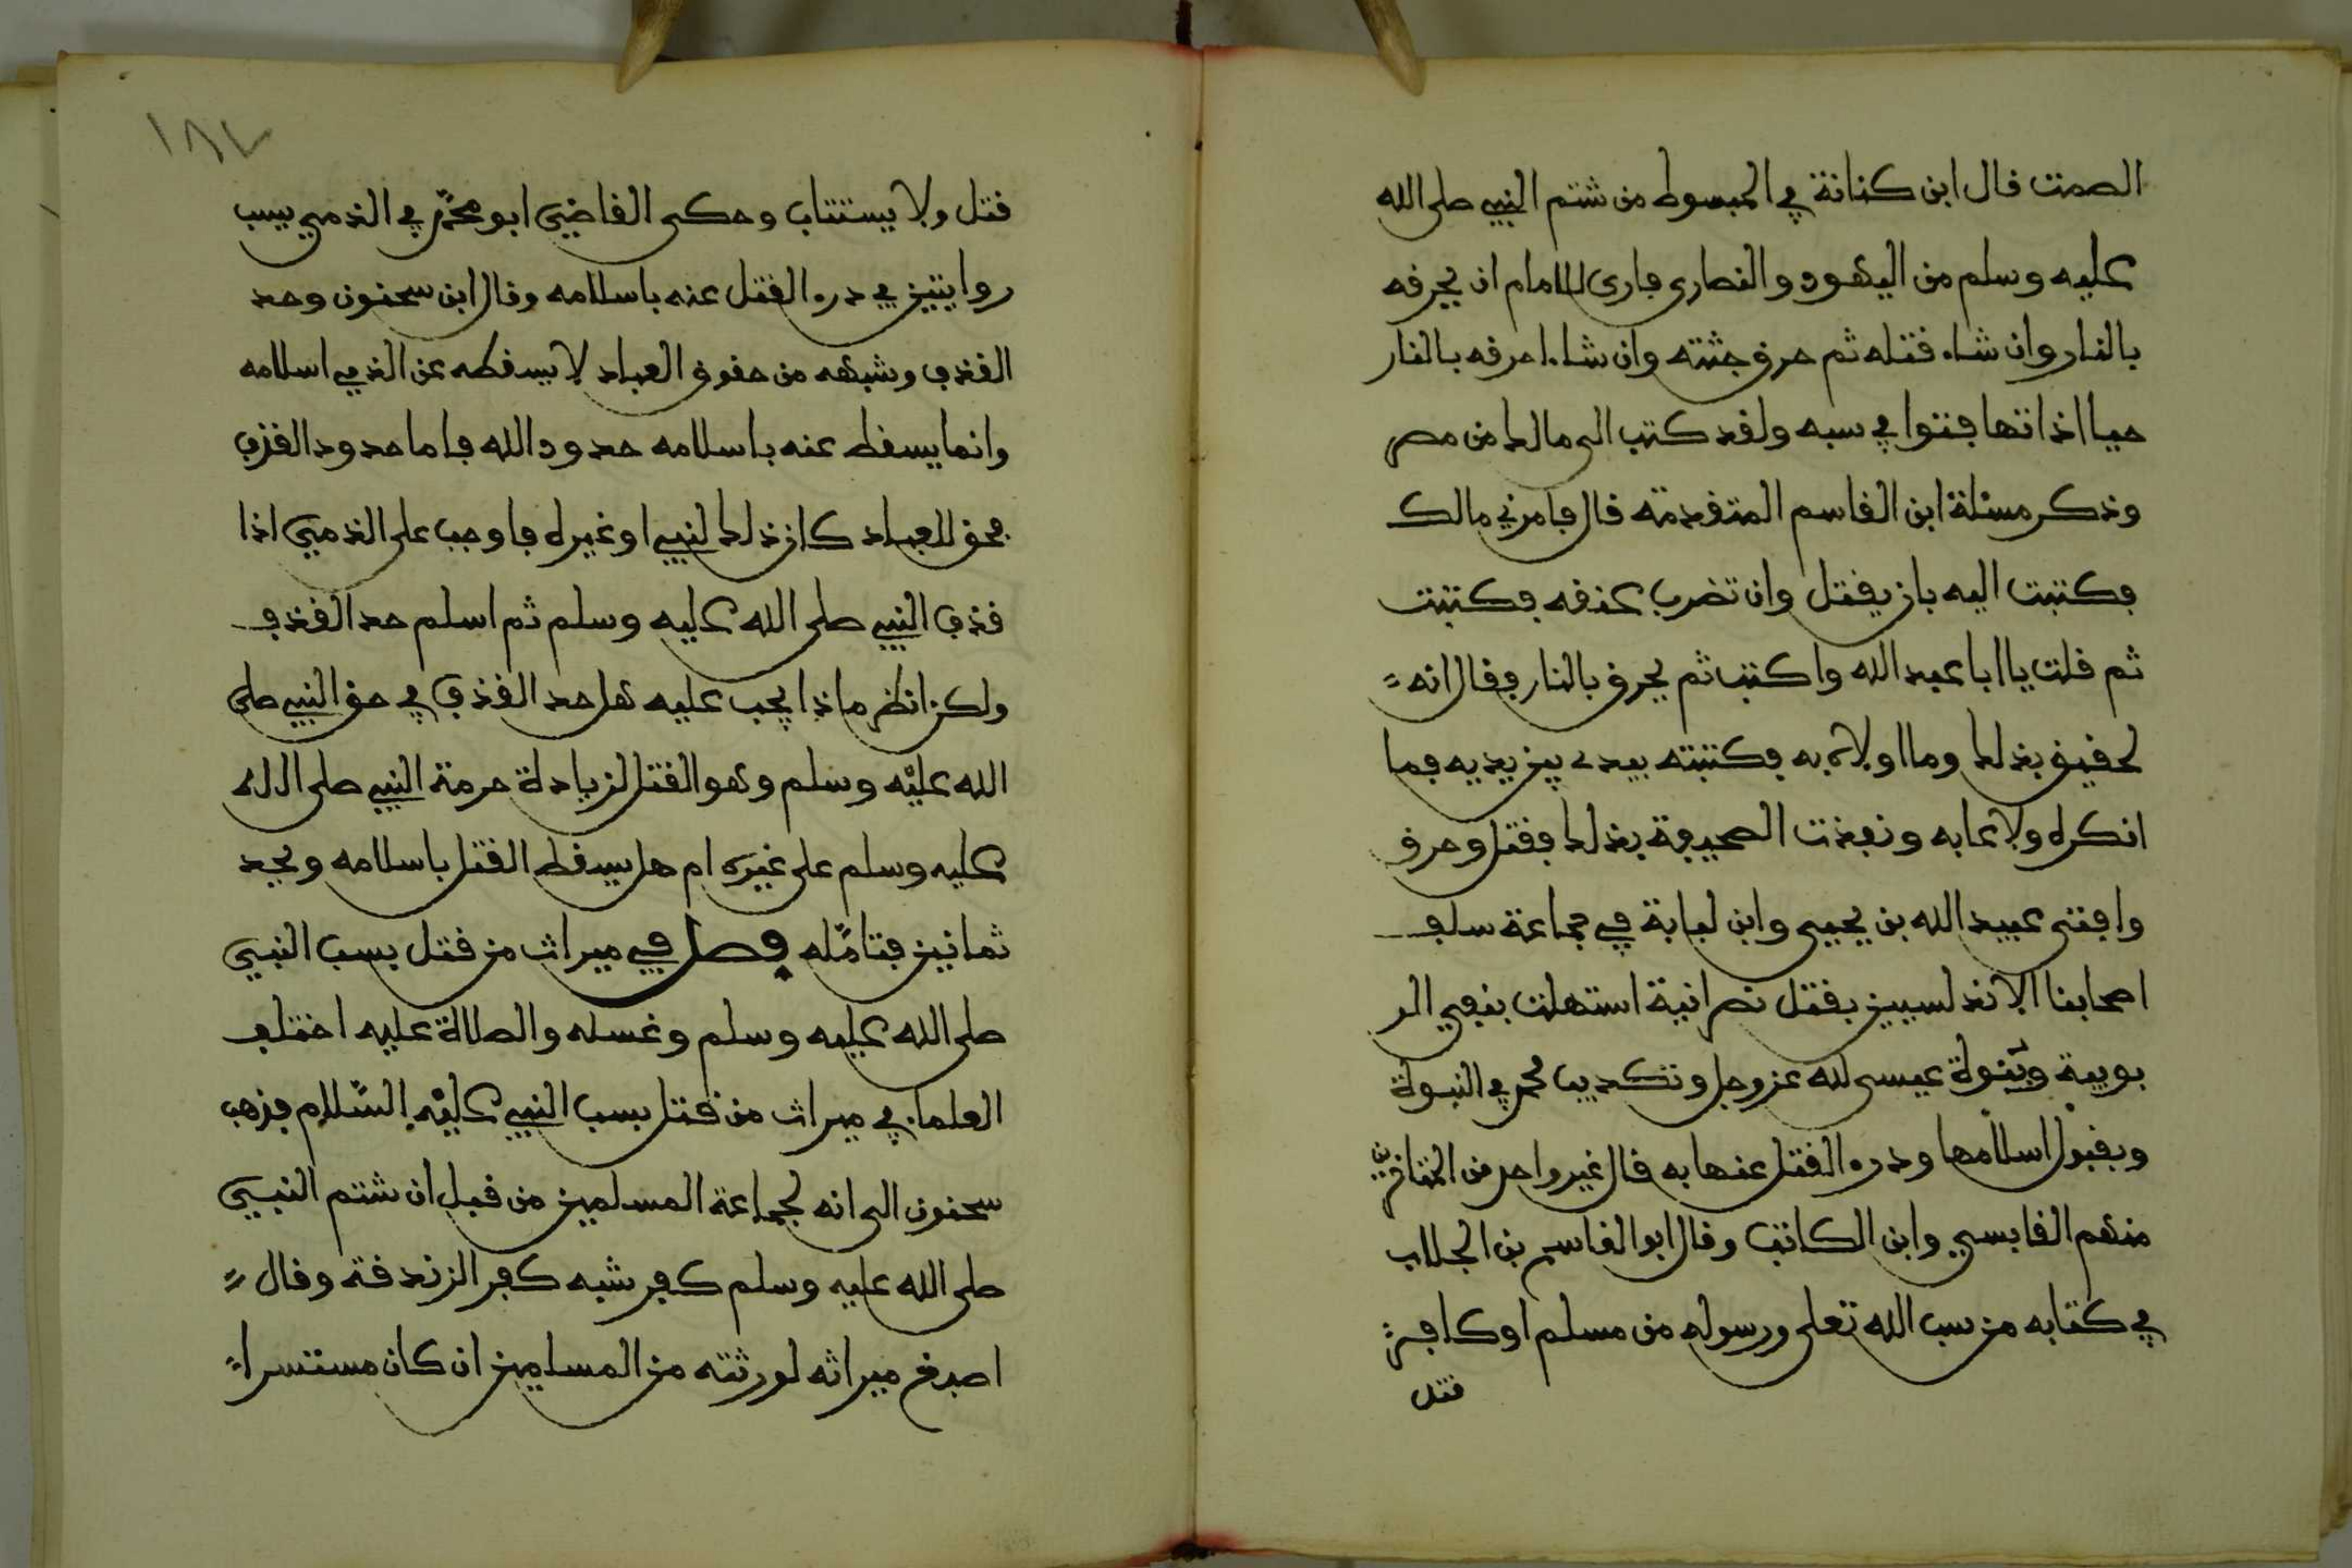 الصمت قال ابن كنانة في المبسوط من شتم النبي صلى الله
عليه وسلم من اليهود والنصارى فارى للامام ان يحرقه
بالنار وان شاء قتله ثم حرق جثته وان شاء احرقه بالنار
حيا اذا تهافتوا في سبه ولقد كتب الى مالك من مصر
وذكر مسئلة ابن القاسم المتقدمة قال فامرني مالك
فكتبت اليه بان يقتل وان تضرب عنقه فكتبت
ثم قلت يا ابا عبد الله واكتب ثم يحرق بالنار فقال انه
لحقيق بذلك وما اولاه به فكتبته بيدي بين يديه فما
انكره ولا عابه ونفذت الصحيفة بذلك فقتل وحرق
وافتى عبيد الله بن يحيى وابن لبابة في جماعة سلف
اصحابنا الاندلسيين بقتل نصرانية استهلت بنفي الر
بوبية وبنوة عيسى لله عز وجل وتكذيب محمد في النبوة
وبقبول اسلامها ودرء القتل عنها به قال غير واحد من المتاخرين
منهم القابسي وابن الكاتب وقال ابو القاسم بن الجلاب
في كتابه من سب الله تعلى ورسوله من مسلم او كافر
قتل
١٨٧
قتل ولا يستتاب وحكى القاضي ابو محمد في الذمي يسب
روايتين في درء القتل عنه باسلامه وقال ابن سحنون وحد
القذف وشبهه من حقوق العباد لا يسقطه عن الذمي اسلامه
وانما يسقط عنه باسلامه حدود الله فاما حدود القذف
فحق للعباد كان ذلك لنبي او غيره فاوجب على الذمي اذا
قذف النبي صلى الله عليه وسلم ثم اسلم حد القذف
ولكن انظر ماذا يجب عليه هل حد القذف في حق النبي صلى
الله عليه وسلم وهو القتل لزيادة حرمة النبي صلى الله
عليه وسلم على غيره ام هل يسقط القتل باسلامه ويحد
ثمانين فتامله فصل في ميراث من قتل بسب النبي
صلى الله عليه وسلم وغسله والصلاة عليه اختلف
العلماء في ميراث من قتل بسب النبي عليه السلام فذهب
سحنون الى انه لجماعة المسلمين من قبل ان شتم النبي
صلى الله عليه وسلم كفر شبه كفر الزندقة وقال
اصبغ ميراثه لورثته من المسلمين ان كان مستسرا